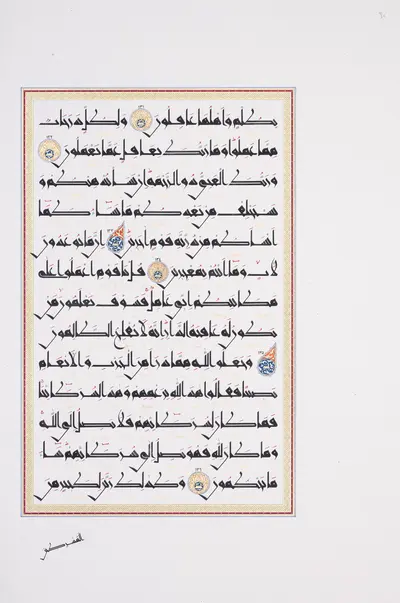 بظلم وأهلها غافلون ١٣١ ولكل درجات
مما عملوا وما ربك بغافل عما يعملون ١٣٢
وربك الغني ذو الرحمة إن يشأ يذهبكم و
يستخلف من بعدكم ما يشاء كما
أنشأكم من ذرية قوم آخرين ١٣٣ إن ما توعدون
لآت وما أنتم بمعجزين ١٣٤ قل يا قوم اعملوا على
مكانتكم إني عامل فسوف تعلمون من
تكون له عاقبة الدار إنه لا يفلح الظالمون
١٣٥ وجعلوا لله مما ذرأ من الحرث والأنعام
نصيبا فقالوا هذا لله بزعمهم وهذا لشركائنا
فما كان لشركائهم فلا يصل إلى الله
وما كان لله فهو يصل إلى شركائهم ساء
ما يحكمون ١٣٦ وكذلك زين لكثير من
المشركين